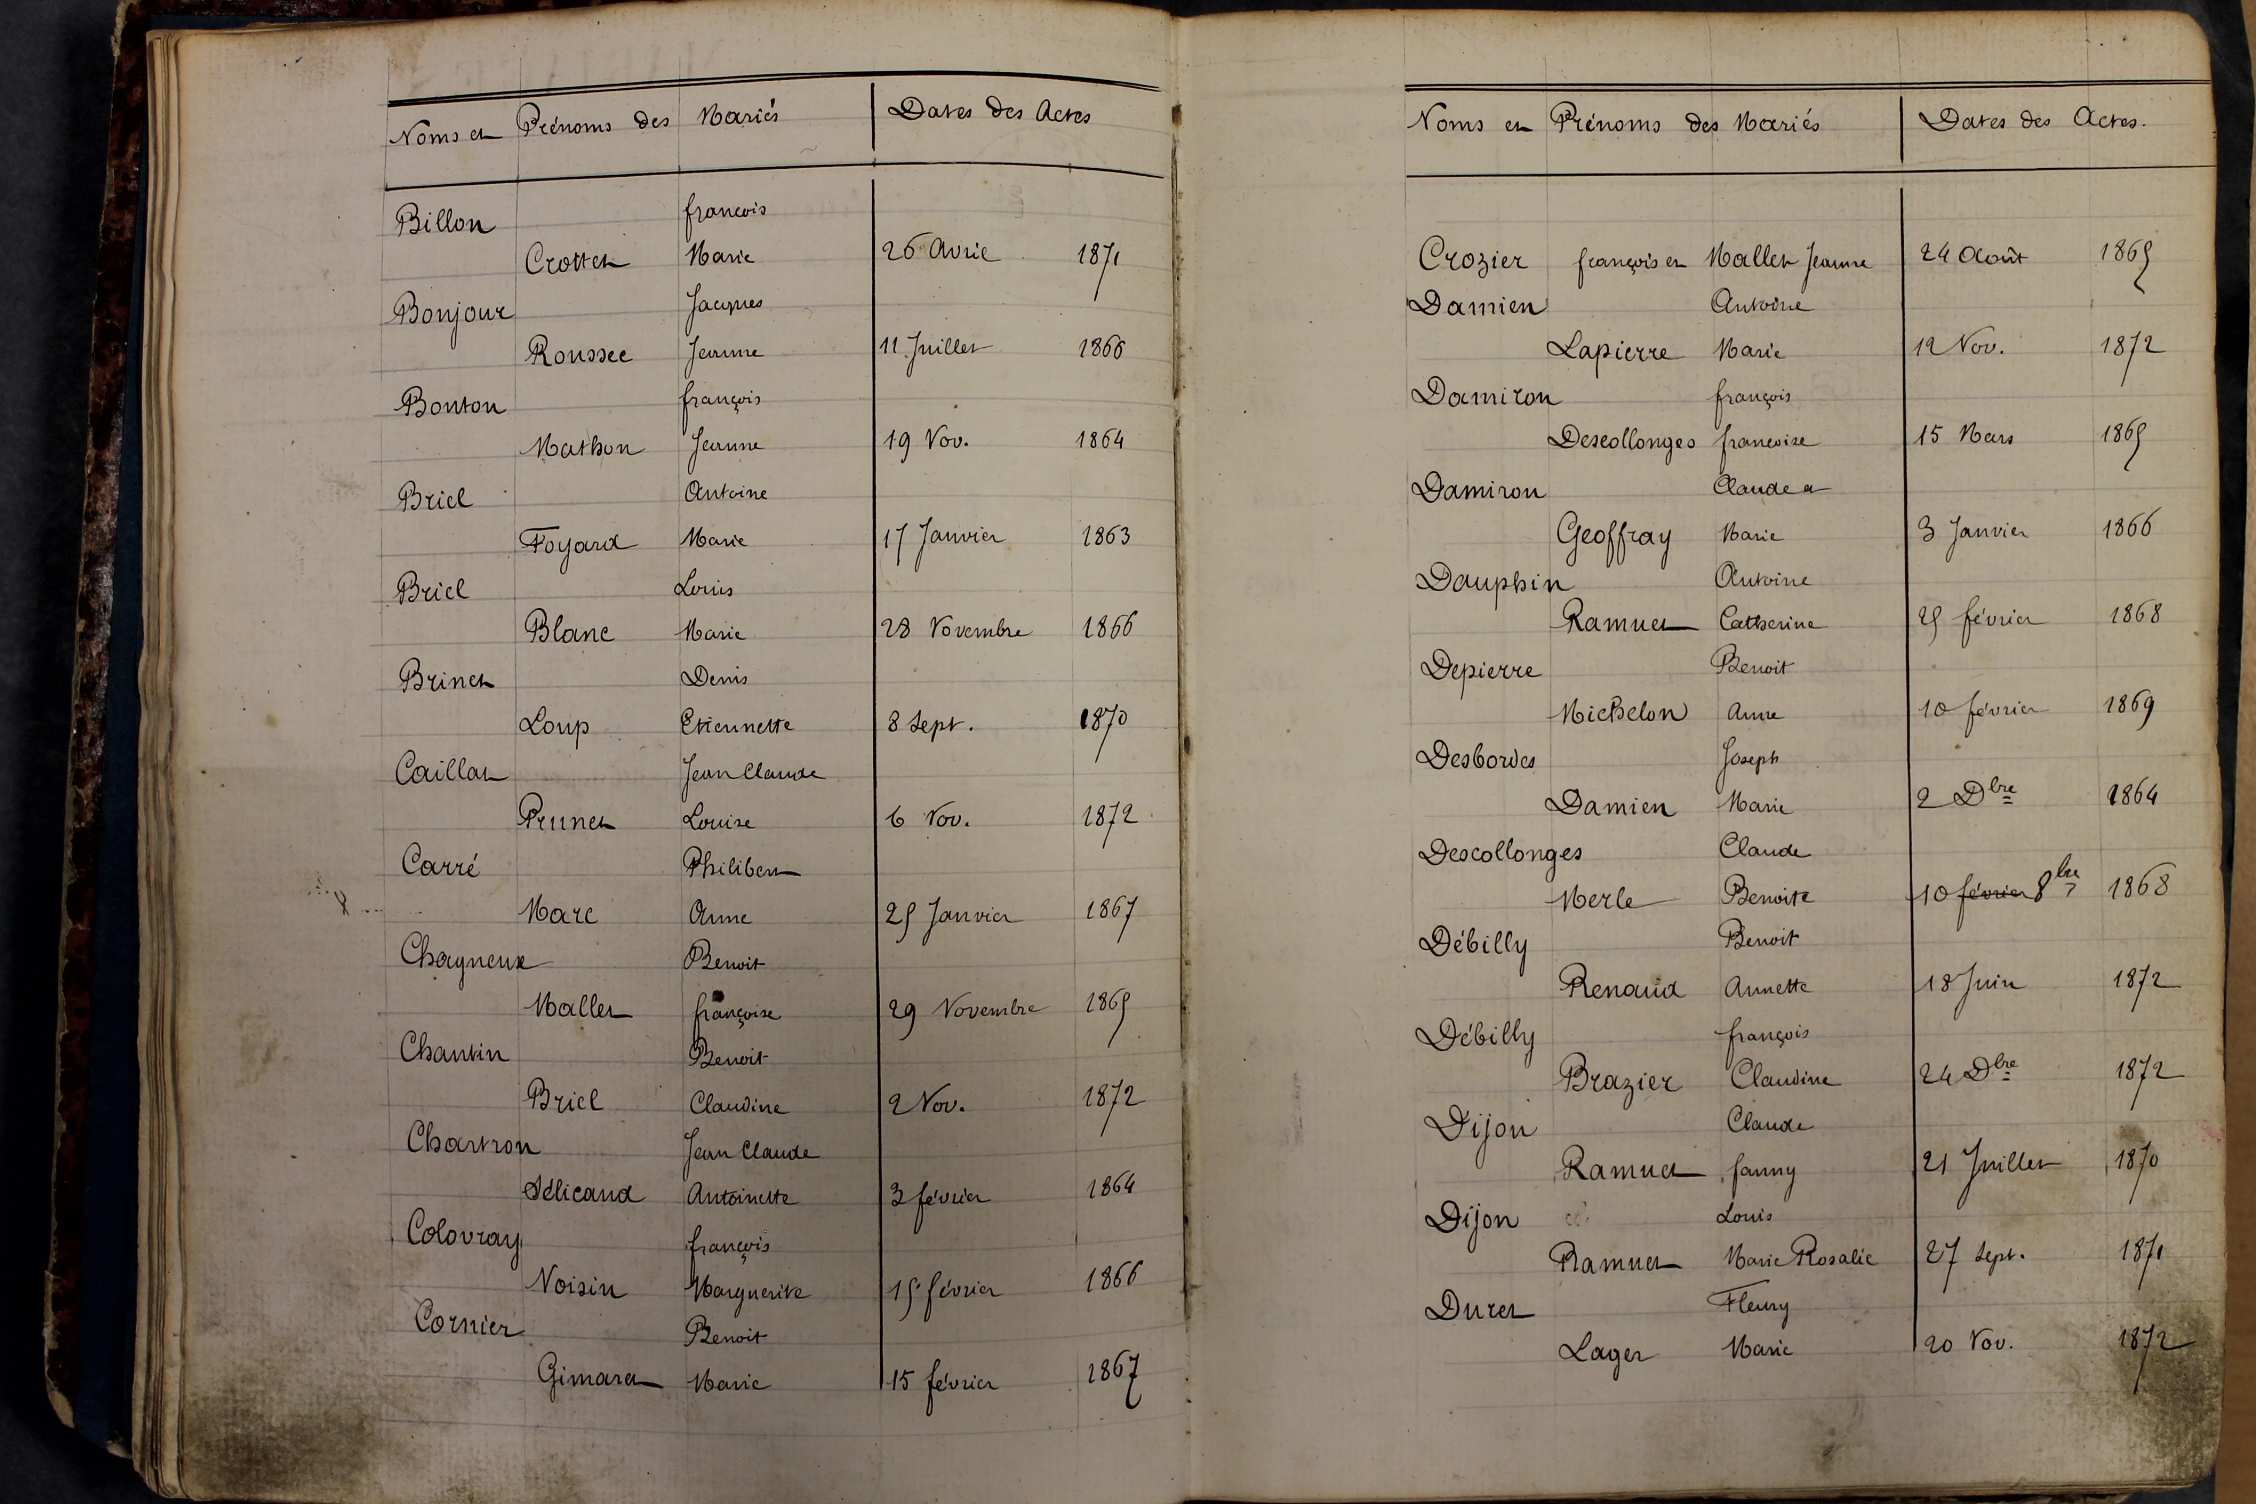 Noms et Prénoms des Mariés Dates des Actes
Billon francois
Crottet Marie 26 Avril 1871
Bonjour Jacques
Roussel Jeanne 11 Juillet 1866
Bonton françois
Mathon Jeanne 19 Nov. 1864
Briel Antoine
Foyard Marie 17 Janvier 1863
Briel Louis
Blanc Marie 28 Novembre 1866
Brinet Denis
Loup Etiennette 8 Sept. 1870
Caillat Jean Claude
Prunet Louise 6 Nov. 1872
Carré Philibert
Marc Anne 25 Janvier 1867
Chagneux Benoit
Mallet françoise 29 Novembre 1865
Chantin Benoit
Briel Claudine 2 Nov. 1872
Chartron Jean Claude
Sélicand Antoinette 3 février 1864
Colovray françois
Noisin Marguerite 15 février 1866
Cornier Benoit
Gimaret Marie 15 février 1867
Noms et Prénoms des Mariés Dates des Actes.
Crozier françois et Mallet Jeanne 24 Août 1865
Damien Antoine
Lapierre Marie 12 Nov. 1872
Damiron françois
Descollonges francoise 15 Mars 1865
Damiron Claude et
Geoffray Marie 3 Janvier 1866
Dauphin Antoine
Ramuet Catherine 25 février 1868
Depierre Benoit
Michelon Anne 10 février 1869
Desbordes Joseph
Damien Marie 2 Dbre 1864
Descollonges Claude
Merle Benoite 10 février 8bre 1868
Débilly Benoit
Renaud Annette 18 Juin 1872
Débilly françois
Brazier Claudine 24 Dbre 1872
Dijon Claude
Ramuet fanny 21 Juillet 1870
Dijon Louis
Ramuet Marie Rosalie 27 Sept. 1871
Duret Fleury
Lager Marie 20 Nov. 1872